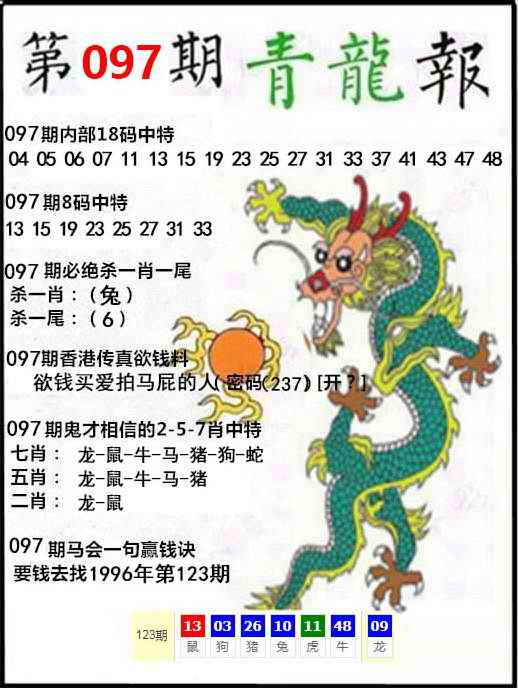 第097期 青龍報
097期内部18码中特
04 05 06 07 11 13 15 19 23 25 27 31 33 37 41 43 47 48
097期8码中特
13 15 19 23 25 27 31 33
097期必绝杀一肖一尾
杀一肖：(兔)
杀一尾：(6)
097期香港传真欲钱料
欲钱买爱拍马屁的人(密码(237)[开?]
097期鬼才相信的2-5-7肖中特
七肖： 龙-鼠-牛-马-猪-狗-蛇
五肖： 龙-鼠-牛-马-猪
二肖： 龙-鼠
097期马会一句赢钱诀
要钱去找1996年第123期
123期 13 03 26 10 11 48 09
鼠 狗 猪 兔 虎 牛 龙